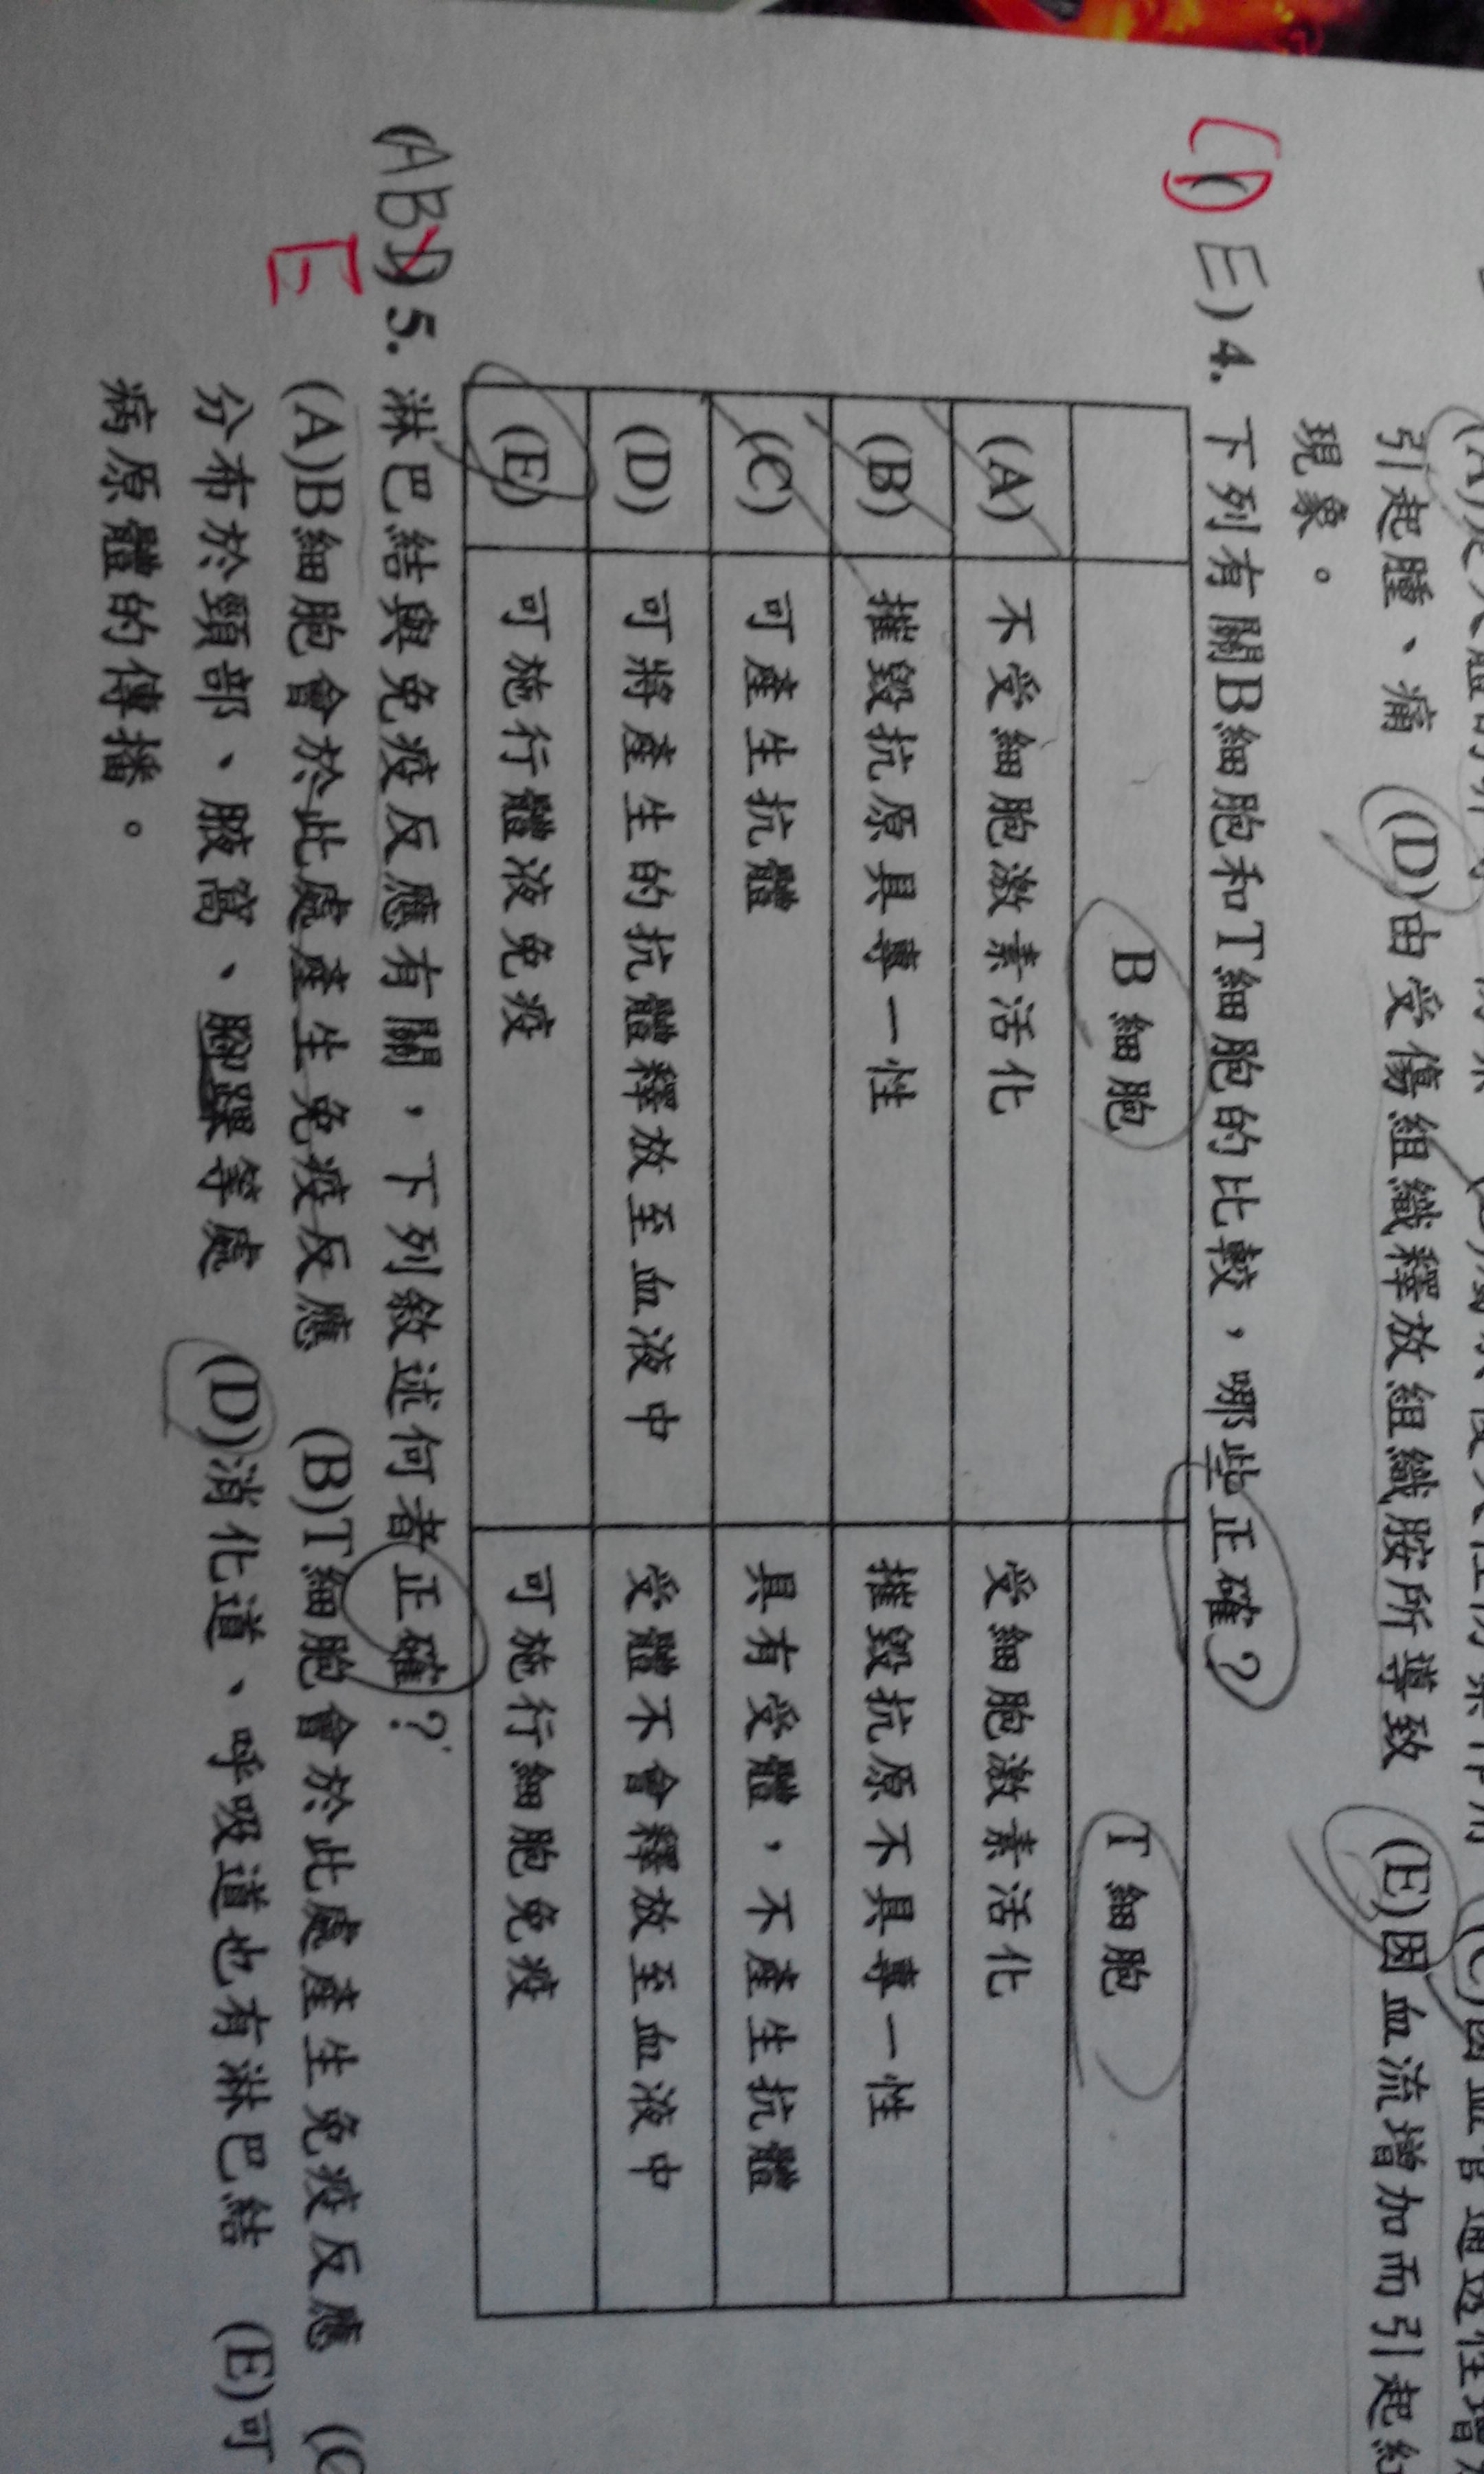 引起腫、痛 (D)由受傷組織釋放組織胺所導致 (E)因血流增加而引起紅
現象。
(D E) 4. 下列有關B細胞和T細胞的比較，哪些正確？
B 細胞 T 細胞
(A) 不受細胞激素活化 受細胞激素活化
(B) 摧毀抗原具專一性 摧毀抗原不具專一性
(C) 可產生抗體 具有受體，不產生抗體
(D) 可將產生的抗體釋放至血液中 受體不會釋放至血液中
(E) 可施行體液免疫 可施行細胞免疫
(ABD) 5. 淋巴結與免疫反應有關，下列敘述何者正確？
E
(A)B細胞會於此處產生免疫反應 (B)T細胞會於此處產生免疫反應 (C
分布於頸部、腋窩、腳踝等處 (D)消化道、呼吸道也有淋巴結 (E)可
病原體的傳播。